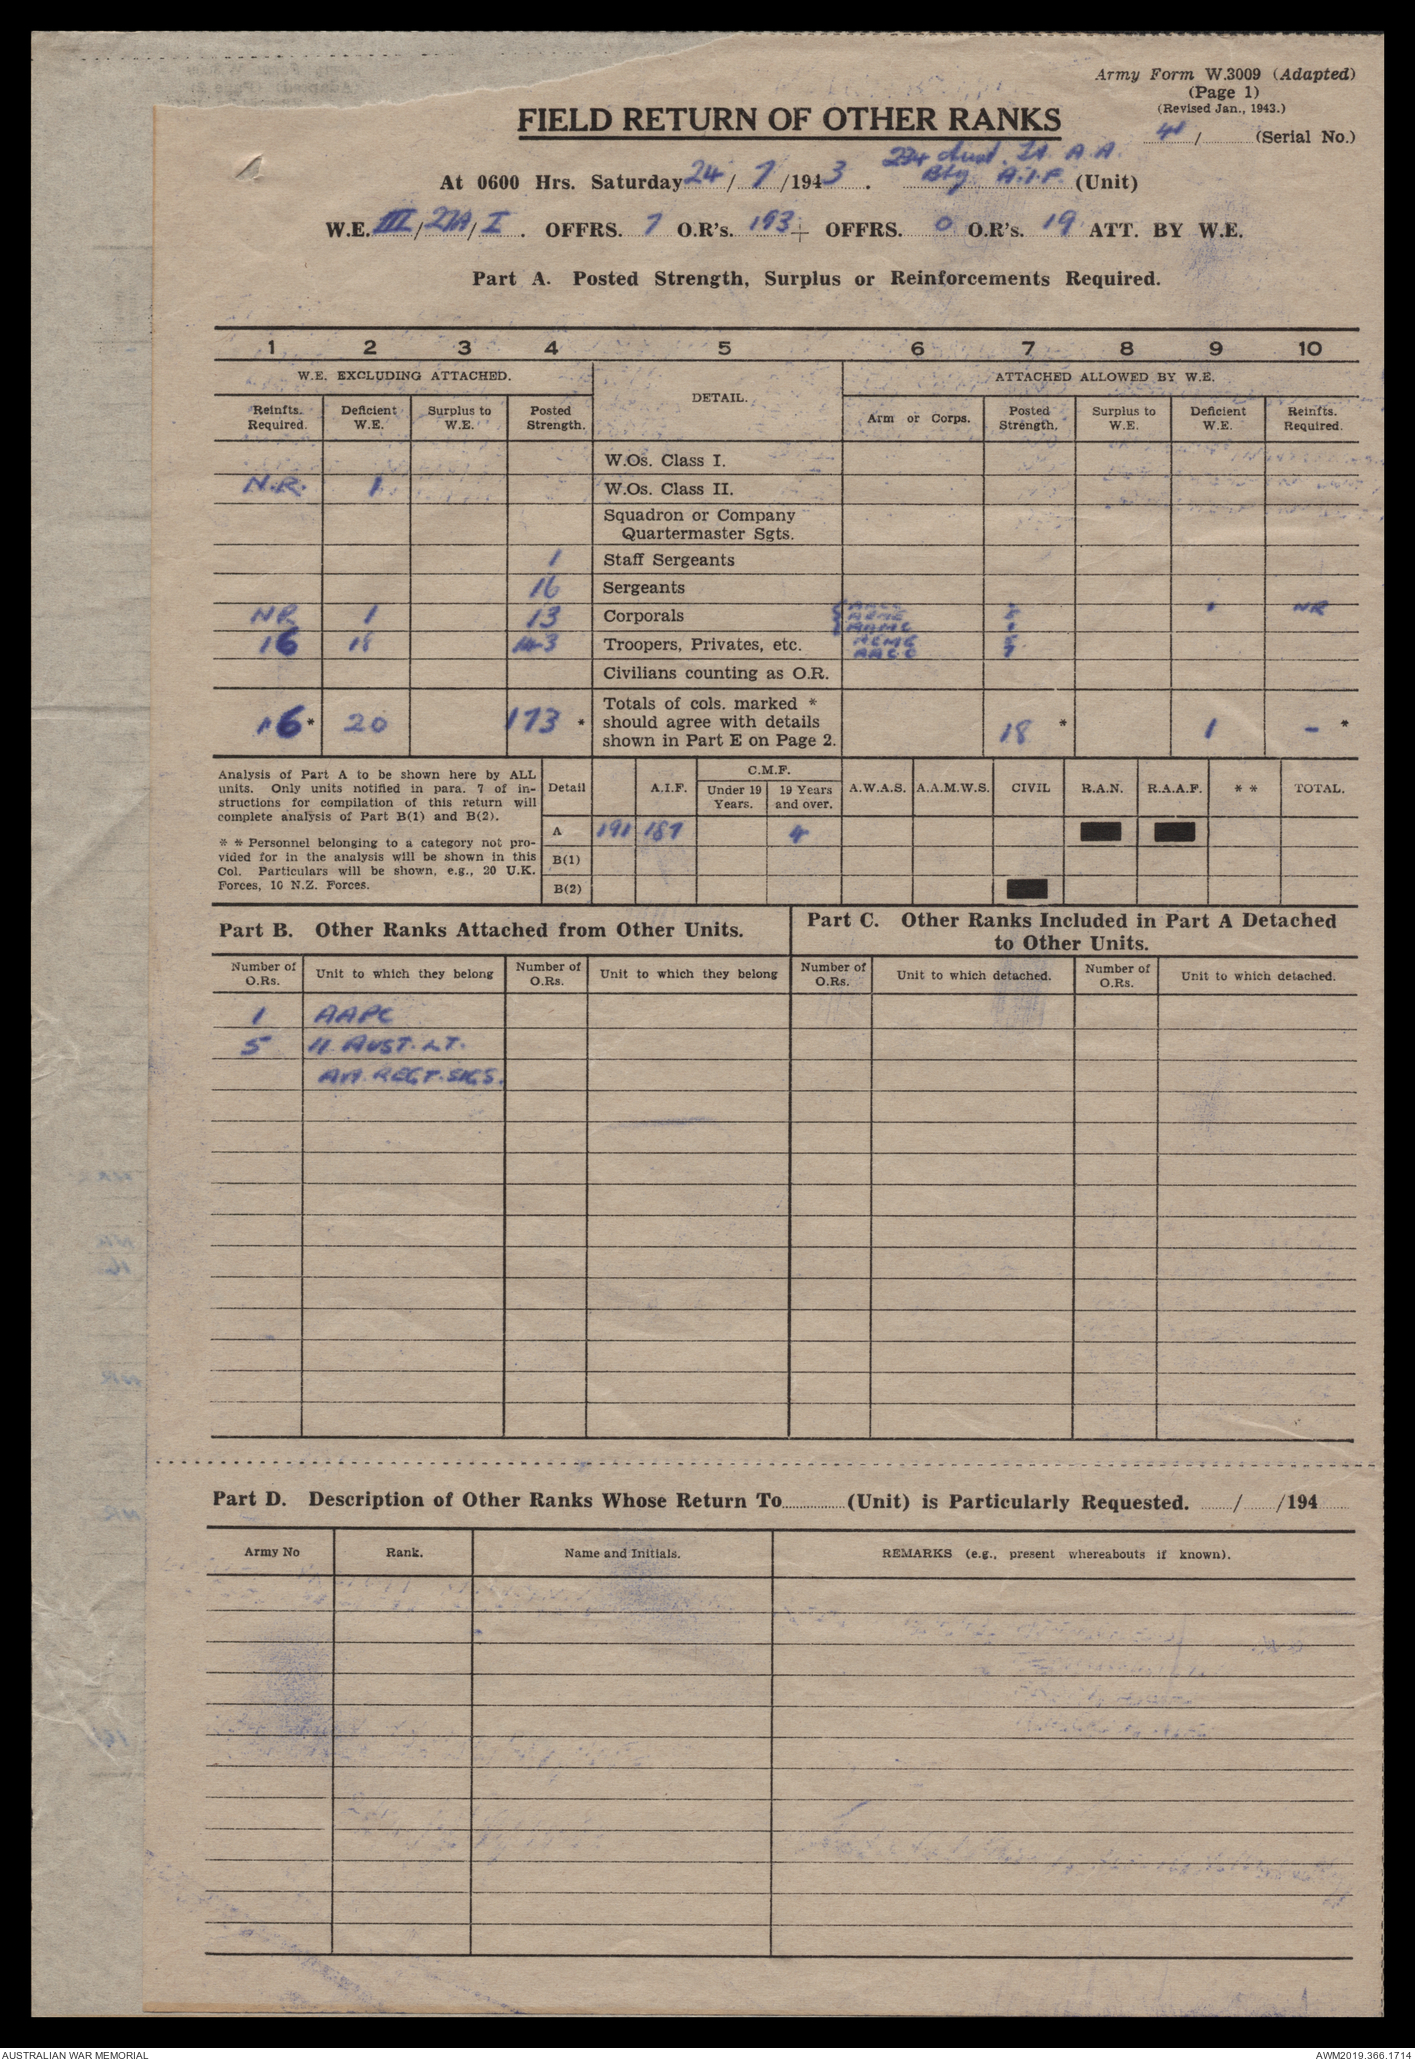 Army Form W.3009 (Adapted)
(Page 1)
(Revised Jan., 1943.)
FIELD RETURN OF OTHER RANKS
41 / (Serial No.)
At 0600 Hrs. Saturday 24 / 7 /1943 . 224 Aust. Lt. A.A. Bty A.I.F (Unit)
W.E. III / 27A / I . OFFRS. 7 O.R's. 193 + OFFRS. 0 O.R's. 19 ATT. BY W.E.
Part A. Posted Strength, Surplus or Reinforcements Required.
1 2 3 4 5 6 7 8 9 10
W.E. EXCLUDING ATTACHED. DETAIL. ATTACHED ALLOWED BY W.E.
Reinfts. Required. Deficient W.E. Surplus to W.E. Posted Strength. Arm or Corps. Posted Strength. Surplus to W.E. Deficient W.E. Reinfts. Required.
W.Os. Class I.
N.R. 1 W.Os. Class II.
Squadron or Company Quartermaster Sgts.
1 Staff Sergeants
16 Sergeants
NR 1 13 Corporals AAMC 1 1 NR
16 18 143 Troopers, Privates, etc. AEME 5
AACC 7
Civilians counting as O.R.
16 * 20 173 * Totals of cols. marked * should agree with details shown in Part E on Page 2. 18 * 1 - *
Analysis of Part A to be shown here by ALL
units. Only units notified in para. 7 of in-
structions for compilation of this return will
complete analysis of Part B(1) and B(2).
* * Personnel belonging to a category not pro-
vided for in the analysis will be shown in this
Col. Particulars will be shown, e.g., 20 U.K.
Forces, 10 N.Z. Forces.
Detail A.I.F. C.M.F. Under 19 Years. 19 Years and over. A.W.A.S. A.A.M.W.S. CIVIL R.A.N. R.A.A.F. * * TOTAL.
A 191 187 4
B(1)
B(2)
Part B. Other Ranks Attached from Other Units.
Part C. Other Ranks Included in Part A Detached
to Other Units.
Number of O.Rs. Unit to which they belong Number of O.Rs. Unit to which they belong Number of O.Rs. Unit to which detached. Number of O.Rs. Unit to which detached.
1 AAPC
5 11 AUST. LT.
AA. REGT. SIGS.
Part D. Description of Other Ranks Whose Return To (Unit) is Particularly Requested. / /194
Army No Rank. Name and Initials. REMARKS (e.g., present whereabouts if known).
AUSTRALIAN WAR MEMORIAL AWM2019.366.1714